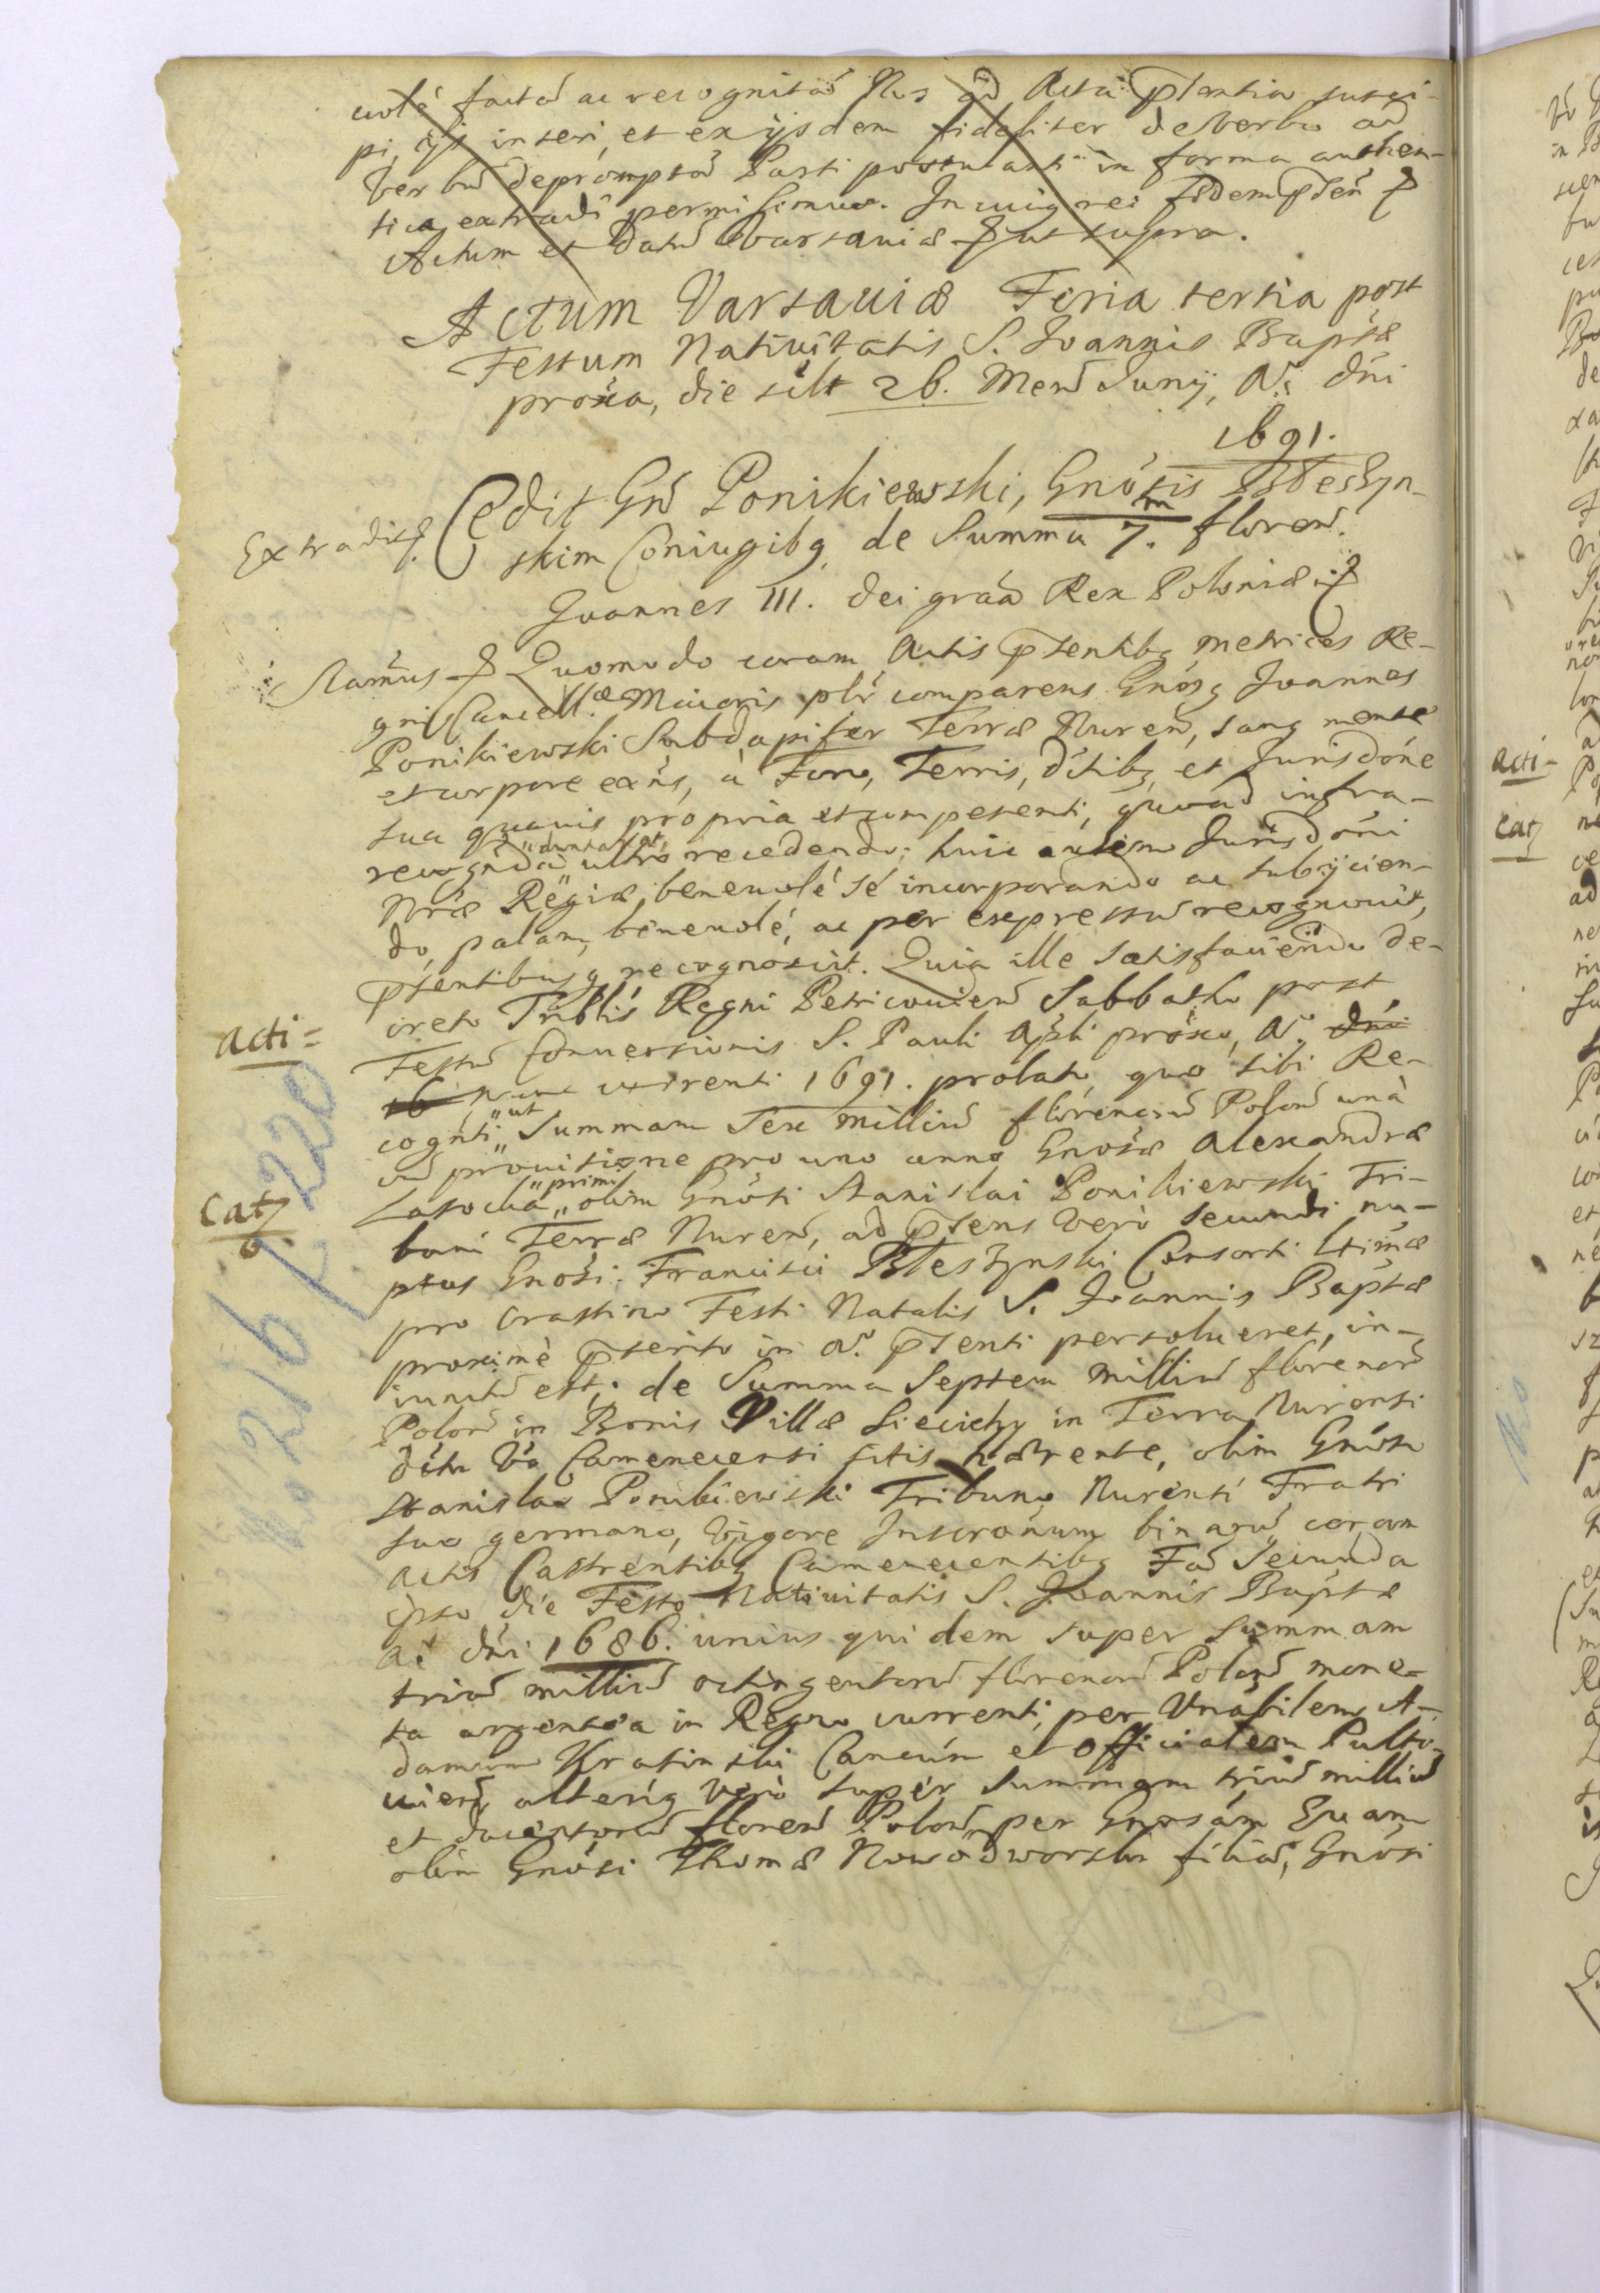 uolé factã ac recognitã Nos ad Acta pñtia susci-
pi, ijs inseri, et ex ijsdem fideliter de verbo ad
verbũ depromptã Parti postulanti in forma authen-
tica extradi permisimus. In cuius rei fidem pñteñ
Actum et datũ Varsaviæ ut supra.
Actum Varsaviæ Feria tertia post
Festum Nativitatis S. Joannis Baptæ
proxa, die silt 26. Mens Junij, Aº. dñi
1691.
Extradit.
Cedit Gñs Ponikiewski, Gnósis Błeszyn-
skim Coniugibq de Summa 7.m floren.
Joannes III. Dei grãa Rex Poloniæ
Namus Quomodo coram Actis pñtentibq metrices Re-
gni Cancellæ. Maioris plr comparens Gnósq Joannes
Ponikiewski Subdapifer Terræ Nuren, sanq mente
et corpore exñs, à Foro, Terris, dstibq, et Jurisdóne
sua quauis propria et competenti, quoad infra-
recognda duntaxat ultro recedendo; huic autem Jurisdóni
Nræ Regiæ beneuolé sé incorporando ac subijcien-
do, palam, beneuolé, ac per expressũ recognouit,
pñtentibusq recognoscit. Quia ille satisfaciendo de-
creto Triblis Regni Petricouien Sabbatho post
Festũ Conuersionis S. Pauli Apłi próxo, Aº. dñi
16 nunc currenti 1691. prolato, quo sibi Re-
cognti ut Summam Sex milliũ florenorũ Polon unà
cũ prouisione pro uno anno Gnosæ Alexandræ
Lasocka primi olim Gnósi Stanislai Ponikiewski Tri-
buni Terræ Nuren, ad pñtens verò secundi nu-
ptus Gnosi Francisci Błeszynski Consorti ltimæ
pro crastino Festi Natalis S. Joannis Baptæ
proximè pñterito in Aº. pñtenti persolueret, in-
iunctũ est; de Summa Septem milliũ florenorũ
Polon in Bonis Villæ Sieciechy in Terra Nurensi
Camenecensi sitis hærente, olim Gnóso
Stanislao Ponikiewski Tribuno Nurensi Fratri
suo germano, Vigore Inscronum binarũ coram
Actis Castrensibq Camenecensibq Fa Secunda
ipso die Festo Natiuitatis S. Joannis Baptæ
Aº dñi 1686. unius quidem super summam
triũ milliũ octingentorũ florenorũ Polon mone-
ta argentea in Regno currenti, per Vnabilem A-
damum Krasinski Cancum et Officialem Pulto-
uien, alterius verò super summam triũ milliũ
et ducentorũ floren Polon per Gnosám Euam
olim Gnósi Thomæ Nowodworski filiã, Gnósi
Acti=
Cat
6.
No 216 p. 220
Acti-
Cat
No